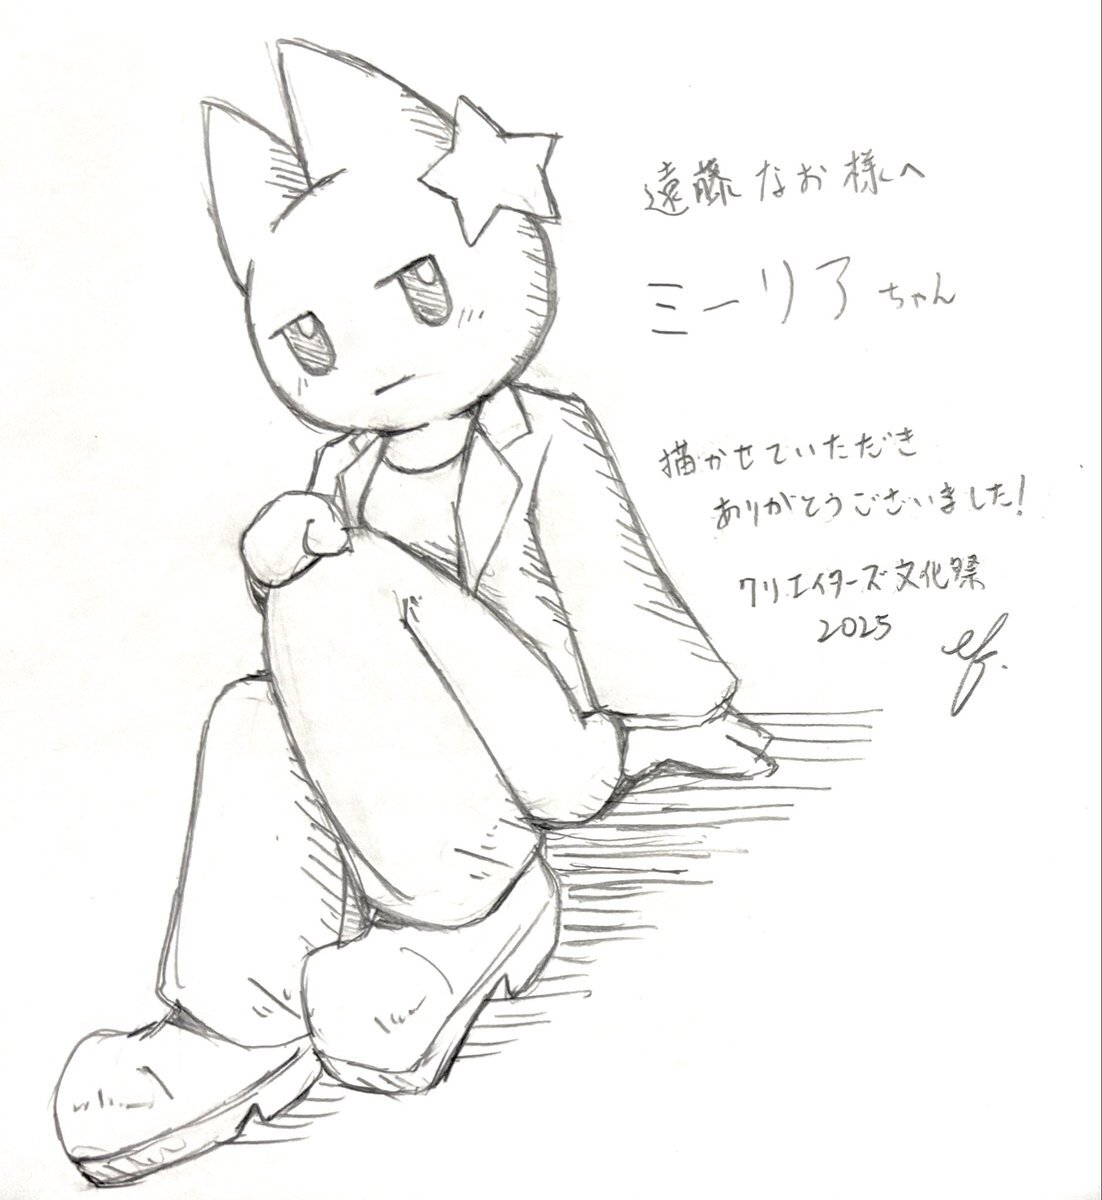 遠藤なお様へ
ミーリアちゃん
描かせていただき
ありがとうございました!
クリエイターズ文化祭
2025
ef.